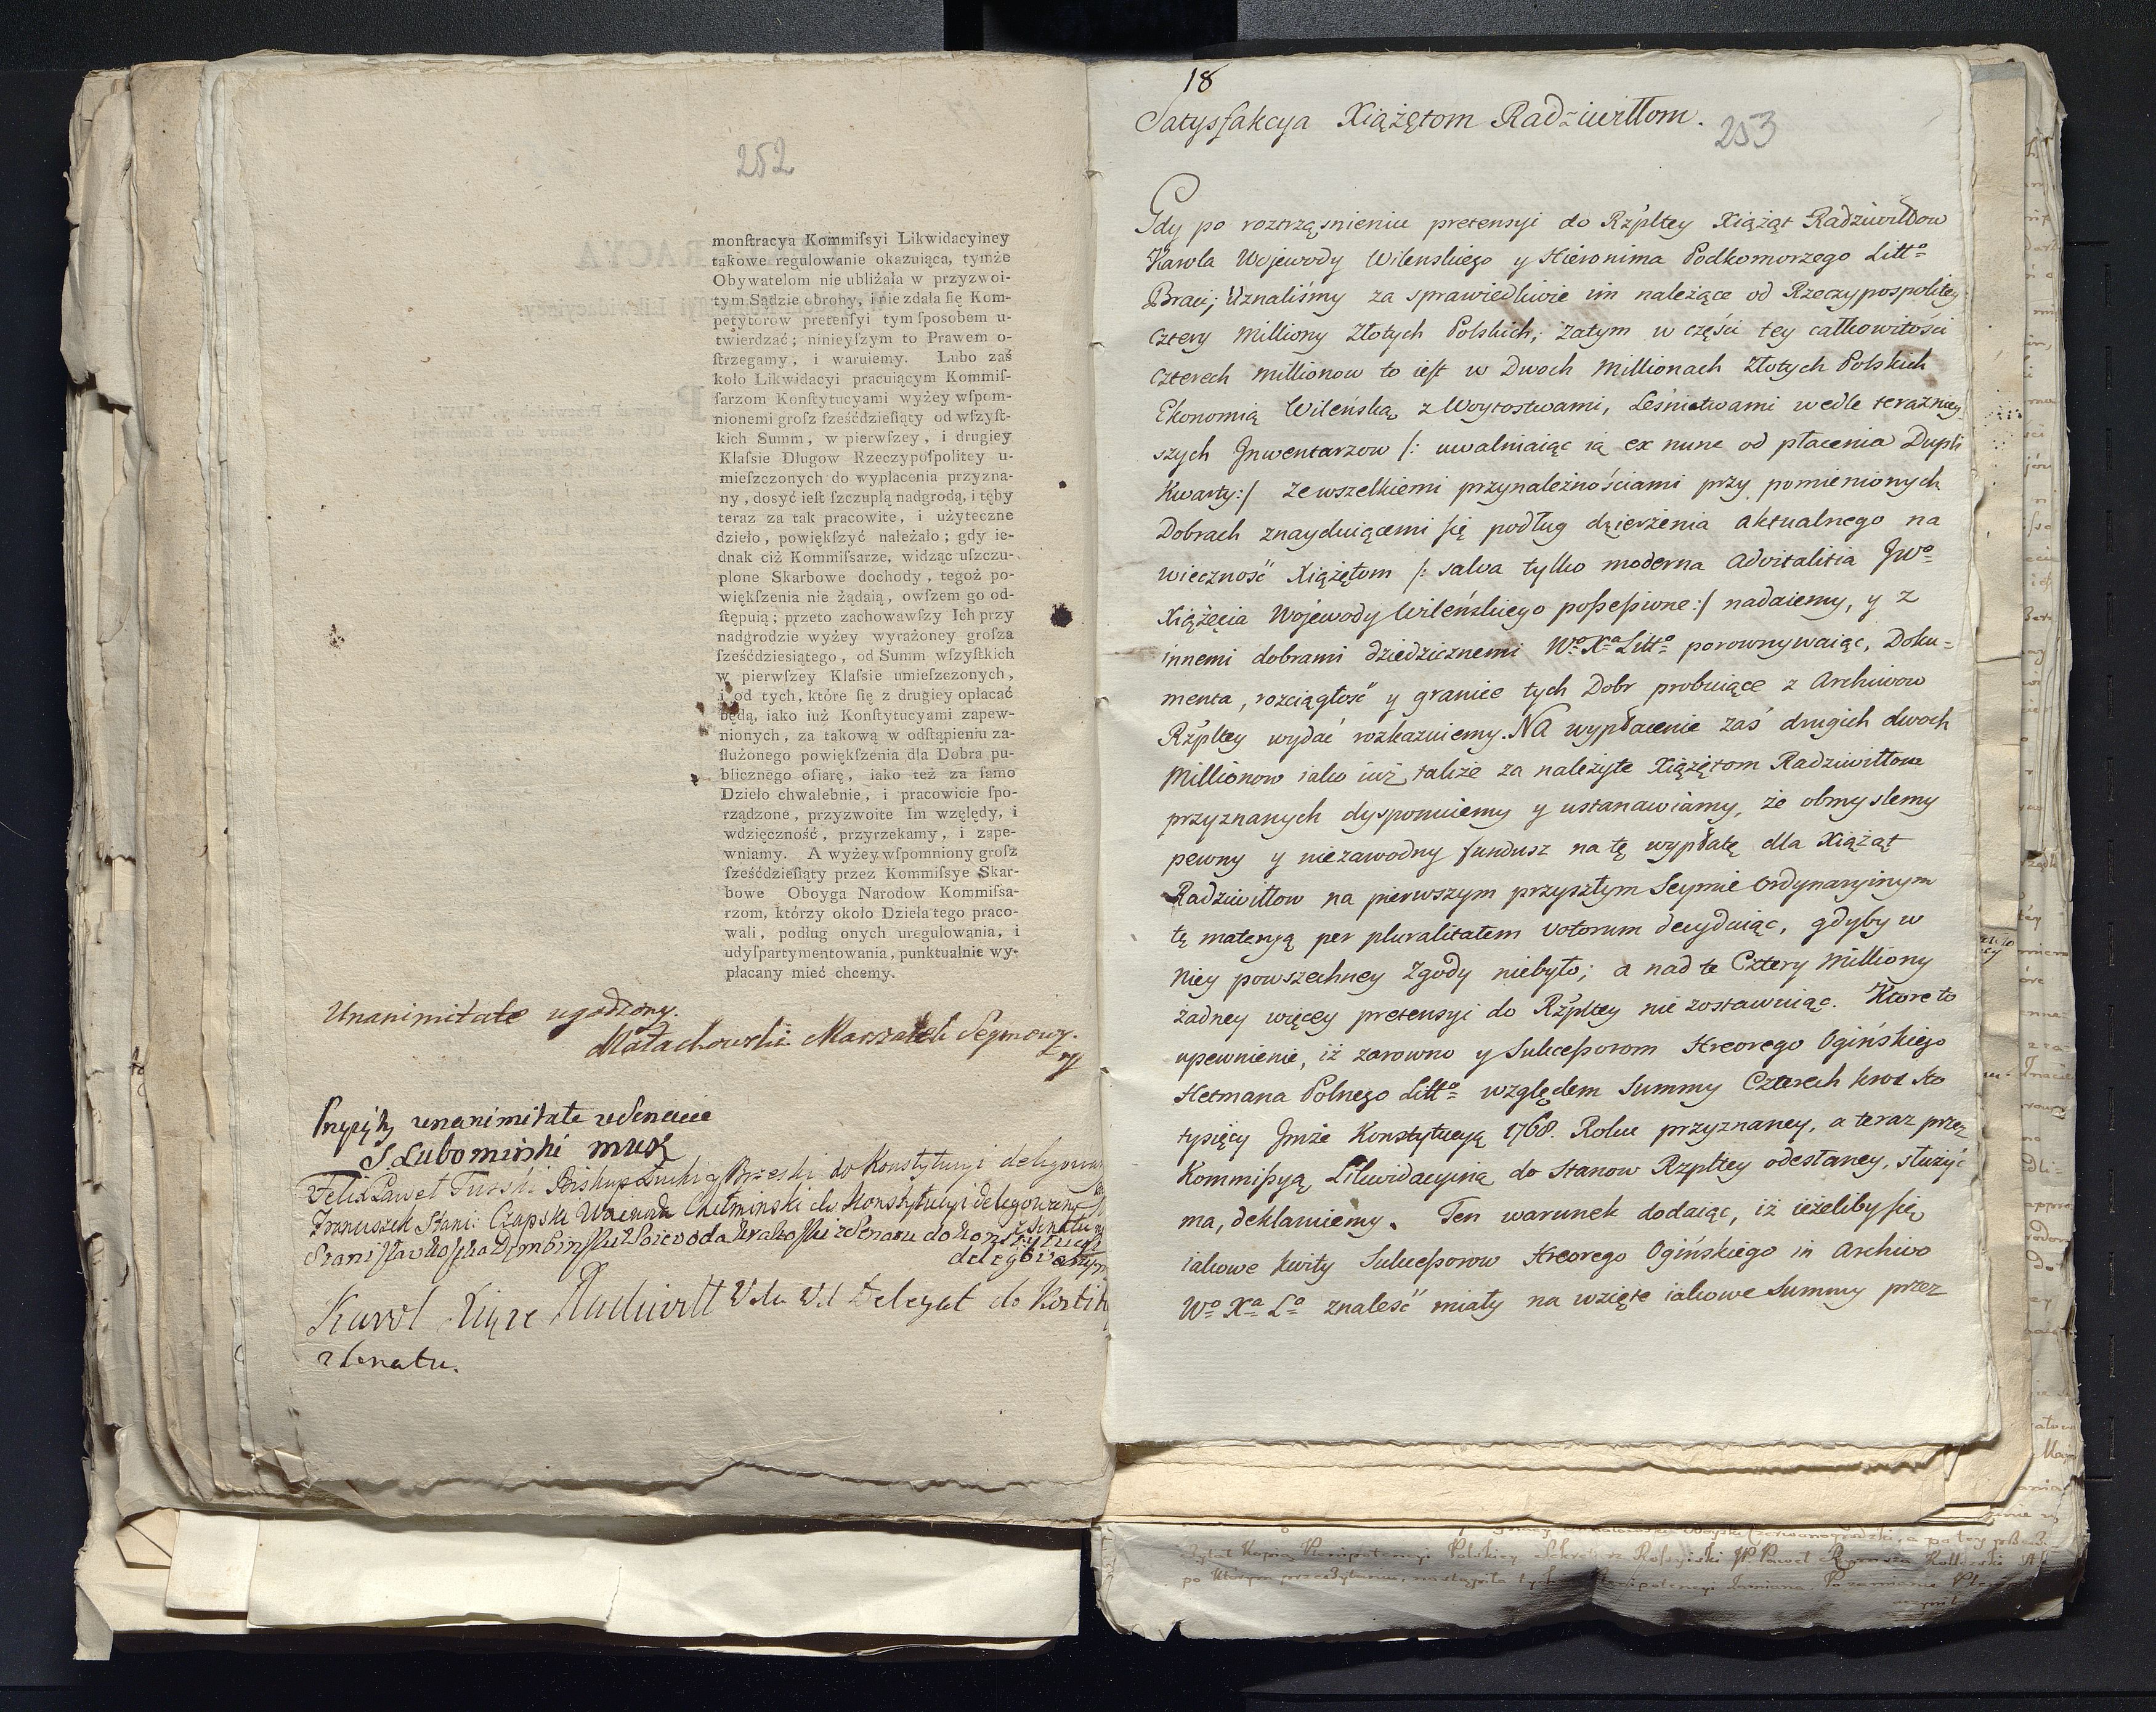 252
monſtracya Kommiſsyi Likwidacyiney
takowe regulowanie okazuiąca, tymże
Obywatelom nie ubliżała w przyzwoi-
tym Sądzie obrony, i nie zdała ſię Kom-
petytorów pretenſyi tym ſposobem u-
twierdzać; ninieyſzym to Prawem o-
ſtrzegamy, i waruiemy. Lubo zaś
koło Likwidacyi pracuiącym Kommiſ-
ſarzom Konſtytucyami wyżey wſpom-
nionemi groſz ſześćdzieſiąty od wſzyſt-
kich Summ, w pierwſzey, i drugiey
Klaſsie Długow Rzeczypoſpolitey u-
mieſzczonych do wypłacenia przyzna-
ny, dosyć ieſt ſzczupłą nadgrodą, i tęby
teraz za tak pracowite, i użyteczne
dzieło, powiękſzyć należało; gdy ie-
dnak ciż Kommiſsarze, widząc uſzczu-
plone Skarbowe dochody, tegoż po-
większenia nie żądaią, owſzem go od-
ſtępuią; przeto zachowawſzy Ich przy
nadgrodzie wyżey wyrażoney groſza
ſześćdziesiątego, od Summ wſzyſtkich
w pierwſzey Klaſsie umieſzczonych,
i od tych, które ſię z drugiey opłacać
będą, iako iuż Konſtytucyami zapew-
nionych, za takową w odſtąpieniu za-
ſłużonego powiękſzenia dla Dobra pu-
blicznego ofiarę, iako też za ſamo
Dzieło chwalebnie, i pracowicie ſpo-
rządzone, przyzwoite Im względy, i
wdzięczność, przyrzekamy, i zape-
wniamy. A wyżey wſpomniony groſz
ſześćdzieſiąty przez Kommiſsye Skar-
bowe Oboyga Narodow Kommiſsa-
rzom, którzy około Dzieła tego praco-
wali, podług onych uregulowania, i
udyſpartymentowania, punktualnie wy-
płacany mieć chcemy.
Unanimitate ugodzony.
Małachowski Marszałek Seymowy.
Przyięty unanimitate w Senacie
S. Lubomirski MWK
Felix Paweł Turski Biskup Łucki y Brzeski do Konstytucyi delegowany
Franciszek Stani: Czapski Woiewoda Chełminski do Konstytucyi delegowany
Stanisław Kostka Dembinski Woiewoda Krakoski z Senatu do Konstytucyi
delegowany
Karol Xiąże Radziwiłł Delegat do
z Senatu.
18
Satysfakcya Xiążętom Radziwiłłom.
253
Gdy po roztrząsnieniu pretensyi do Rzpltey Xiążąt Radziwiłłow
Karola Wojewody Wilenskiego y Hieronima Podkomorzego Litto
Braci; Uznaliśmy za sprawiedliwie im należące od Rzeczypospolitey
cztery Milliony Złotych Polskich; Zatym w części tey całkowitości
czterech Millionow to iest w Dwoch Millionach Złotych Polskich
Ekonomią Wileńską z Woytostwami, Leśnictwami wedle teraźniey
szych Jnwentarzow /: uwalniaiąc ią ex nunc od płacenia Dupli
Kwarty :/ ze wszelkiemi przynależnościami przy pomienionych
Dobrach znayduiącemi się podług dzierżenia aktualnego na
wieczność Xiążętom /: salva tylko moderna advitalitia JWo
Xiążęcia Wojewody Wileńskiego possessione :/ nadaiemy, y z
innemi dobrami dziedzicznemi Wo Xa Litto porownywaiąc, Doku=
menta, rozciągłość y granice tych Dobr probuiące z Archiwow
Rzpltey wydać rozkazuiemy. Na wypłacenie zaś drugich dwoch
Millionow iako iuż także za należyte Xiążętom Radziwiłłom
przyznanych dysponuiemy y ustanawiamy, że obmyslemy
pewny y niezawodny fundusz na tę wypłatę dla Xiążąt
Radziwiłłow na pierwszym przyszłym Seymie Ordynaryinym
tę materyą per pluralitatem Votorum decyduiąc, gdyby w
Niey powszechney Zgody niebyło; a nad te Cztery Milliony
żadney więcey pretensyi do Rzpltey nie zostawuiąc. Ktore to
upewnienie, iż zarowno y Sukcessorom Hreorego Ogińskiego
Hetmana Polnego Litto względem Summy Czterech kroć sto
tysięcy Jmże Konstytucyą 1768. Roku przyznaney, a teraz przez
Kommissyą Likwidacyiną do Stanow Rzpltey odesłaney, służyć
ma, deklaruiemy. Ten warunek dodaiąc, iż ieżeliby się
iakowe kwity Sukcessorow Hreorego Ogińskiego in Archivo
Wo Xa La znaleść miały na wzięte iakowe Summy przez